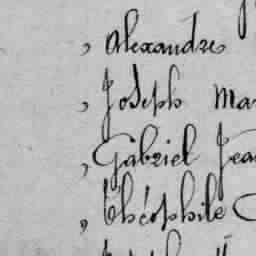 , Alexandre
, Joseph Mar
, Gabriel Jea
, Théophile